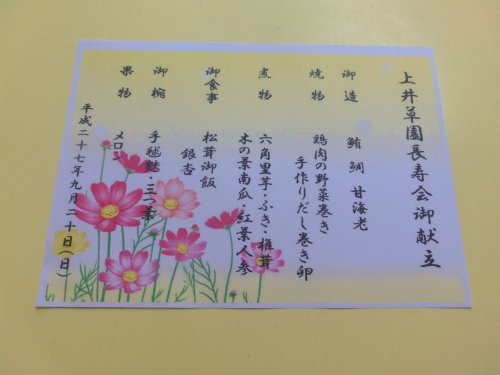 上井草園長寿会御献立
御造　鮪　鯛　甘海老
焼物　鶏肉の野菜巻き
手作りだし巻き卵
煮物　六角里芋・ふき・椎茸
木の葉南瓜・紅葉人参
御食事　松茸御飯
銀杏
御椀　手毬麩・三つ葉
果物　メロン
平成二十七年九月二十日（日）